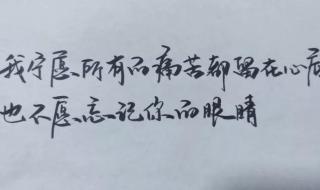 我宁愿所有的痛苦都留在心底
也不愿忘记你的眼睛